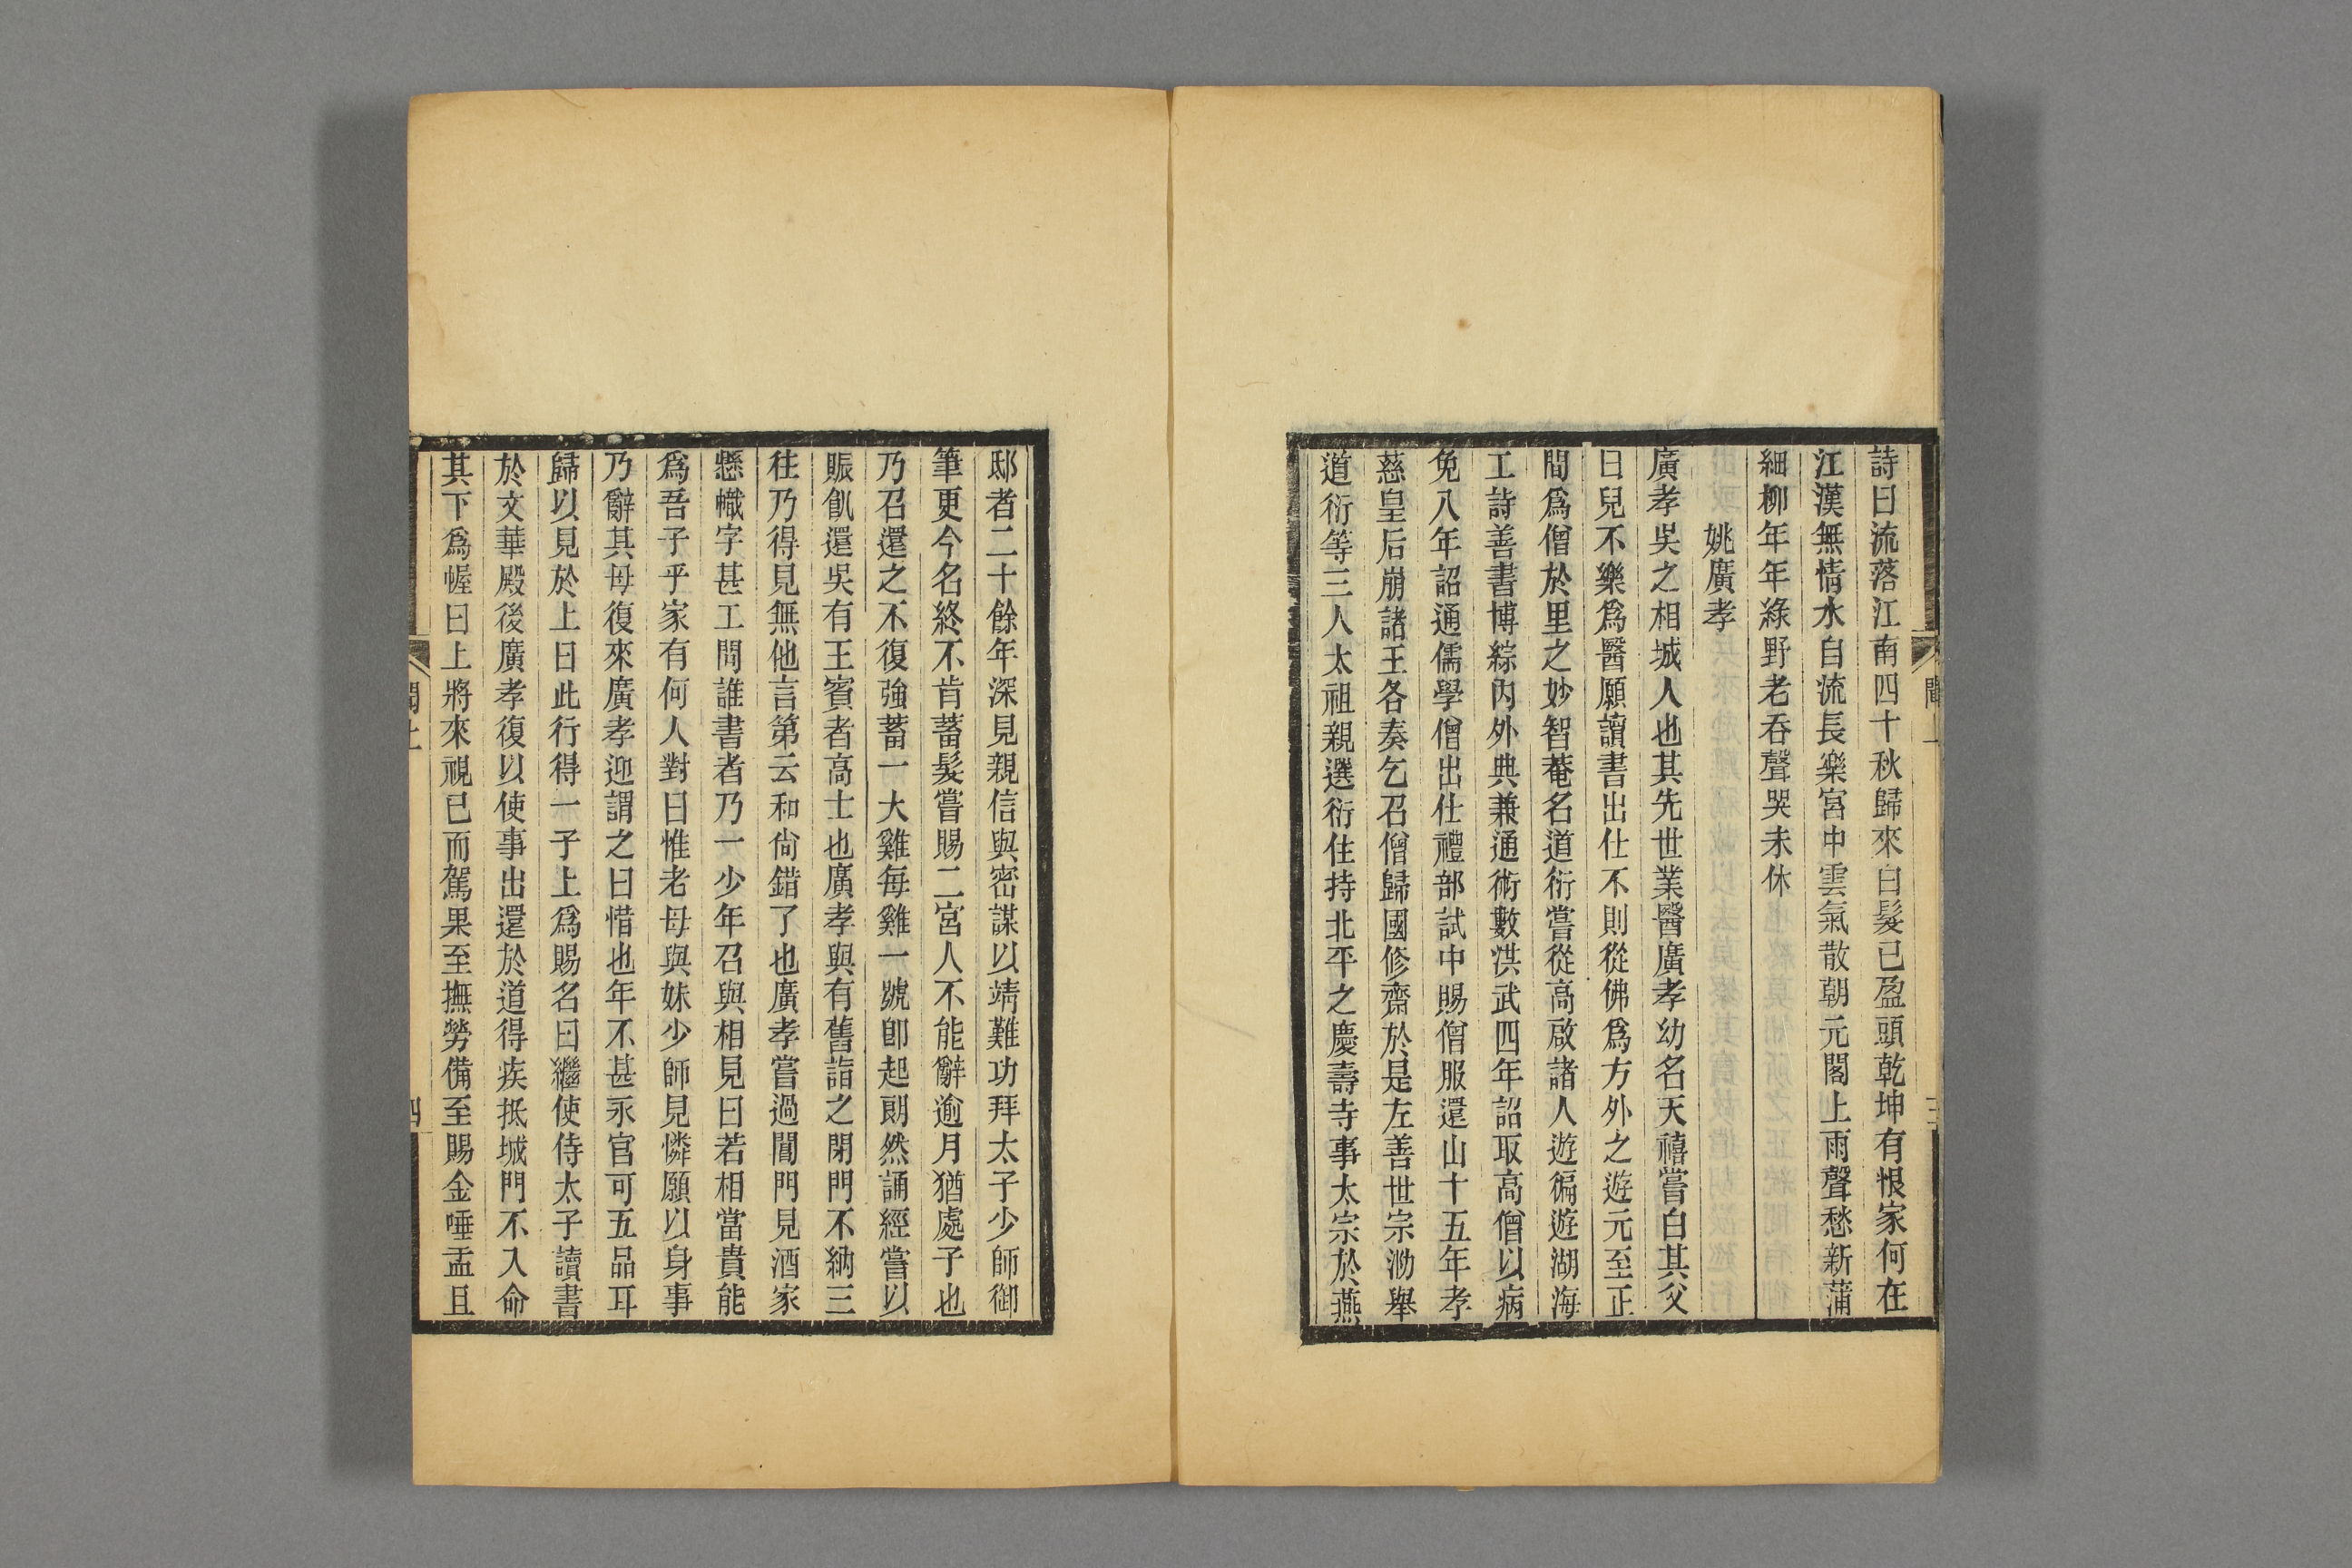 詩曰流落江南四十秋歸來白髮已盈頭乾坤有恨家何在
江漢無情水自流長樂宮中雲氣散朝元閣上雨聲愁新蒲
細柳年年綠野老吞聲哭未休
姚廣孝
廣孝吳之相城人也其先世業醫廣孝幼名天禧嘗白其父
曰兒不樂爲醫願讀書出仕不則從佛爲方外之遊元至正
間爲僧於里之妙智菴名道衍嘗從高啟諸人遊徧遊湖海
工詩善書博綜內外典兼通術數洪武四年詔取高僧以病
免八年詔通儒學僧出仕禮部試中賜僧服還山十五年孝
慈皇后崩諸王各奏乞召僧歸國修齋於是左善世宗泐舉
道衍等三人太祖親選衍住持北平之慶壽寺事太宗於燕
邸者二十餘年深見親信與密謀以靖難功拜太子少師御
筆更今名終不肯蓄髮嘗賜二宮人不能辭逾月猶處子也
乃召還之不復強蓄一大雞每雞一號卽起朗然誦經嘗以
賑飢還吳有王賓者高士也廣孝與有舊詣之閉門不納三
往乃得見無他言第云和尙錯了也廣孝嘗過閶門見酒家
懸幟字甚工問誰書者乃一少年召與相見曰若相當貴能
爲吾子乎家有何人對曰惟老母與妹少師見憐願以身事
乃辭其母復來廣孝迎謂之曰惜也年不甚永官可五品耳
歸以見於上曰此行得一子上爲賜名曰繼使侍太子讀書
於文華殿後廣孝復以使事出還於道得疾抵城門不入命
其下爲幄曰上將來視已而駕果至撫勞備至賜金唾盂且
四